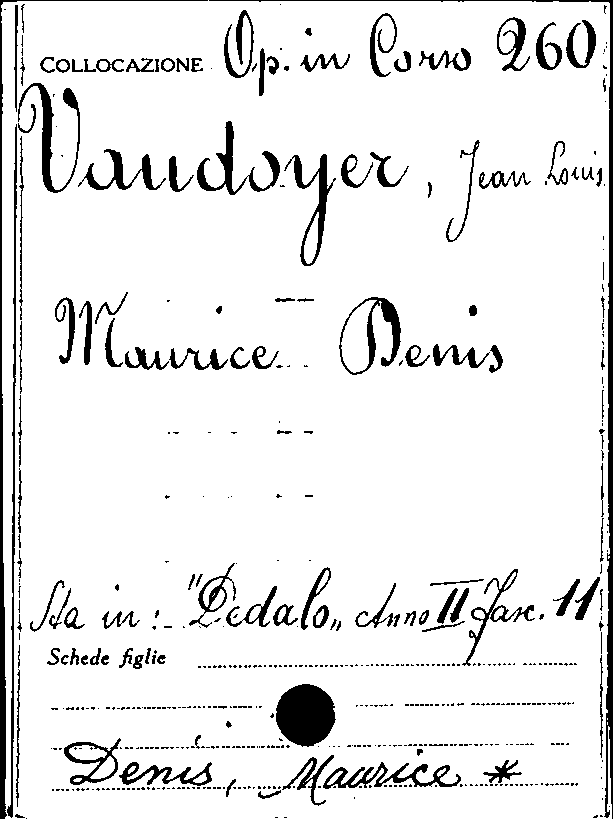 COLLOCAZIONE Op. in Corso 260
Vaudoyer, Jean Louis
Maurice Denis
Sta in: "Dedalo" Anno II Fasc. 11
Schede figlie
Denis, Maurice *